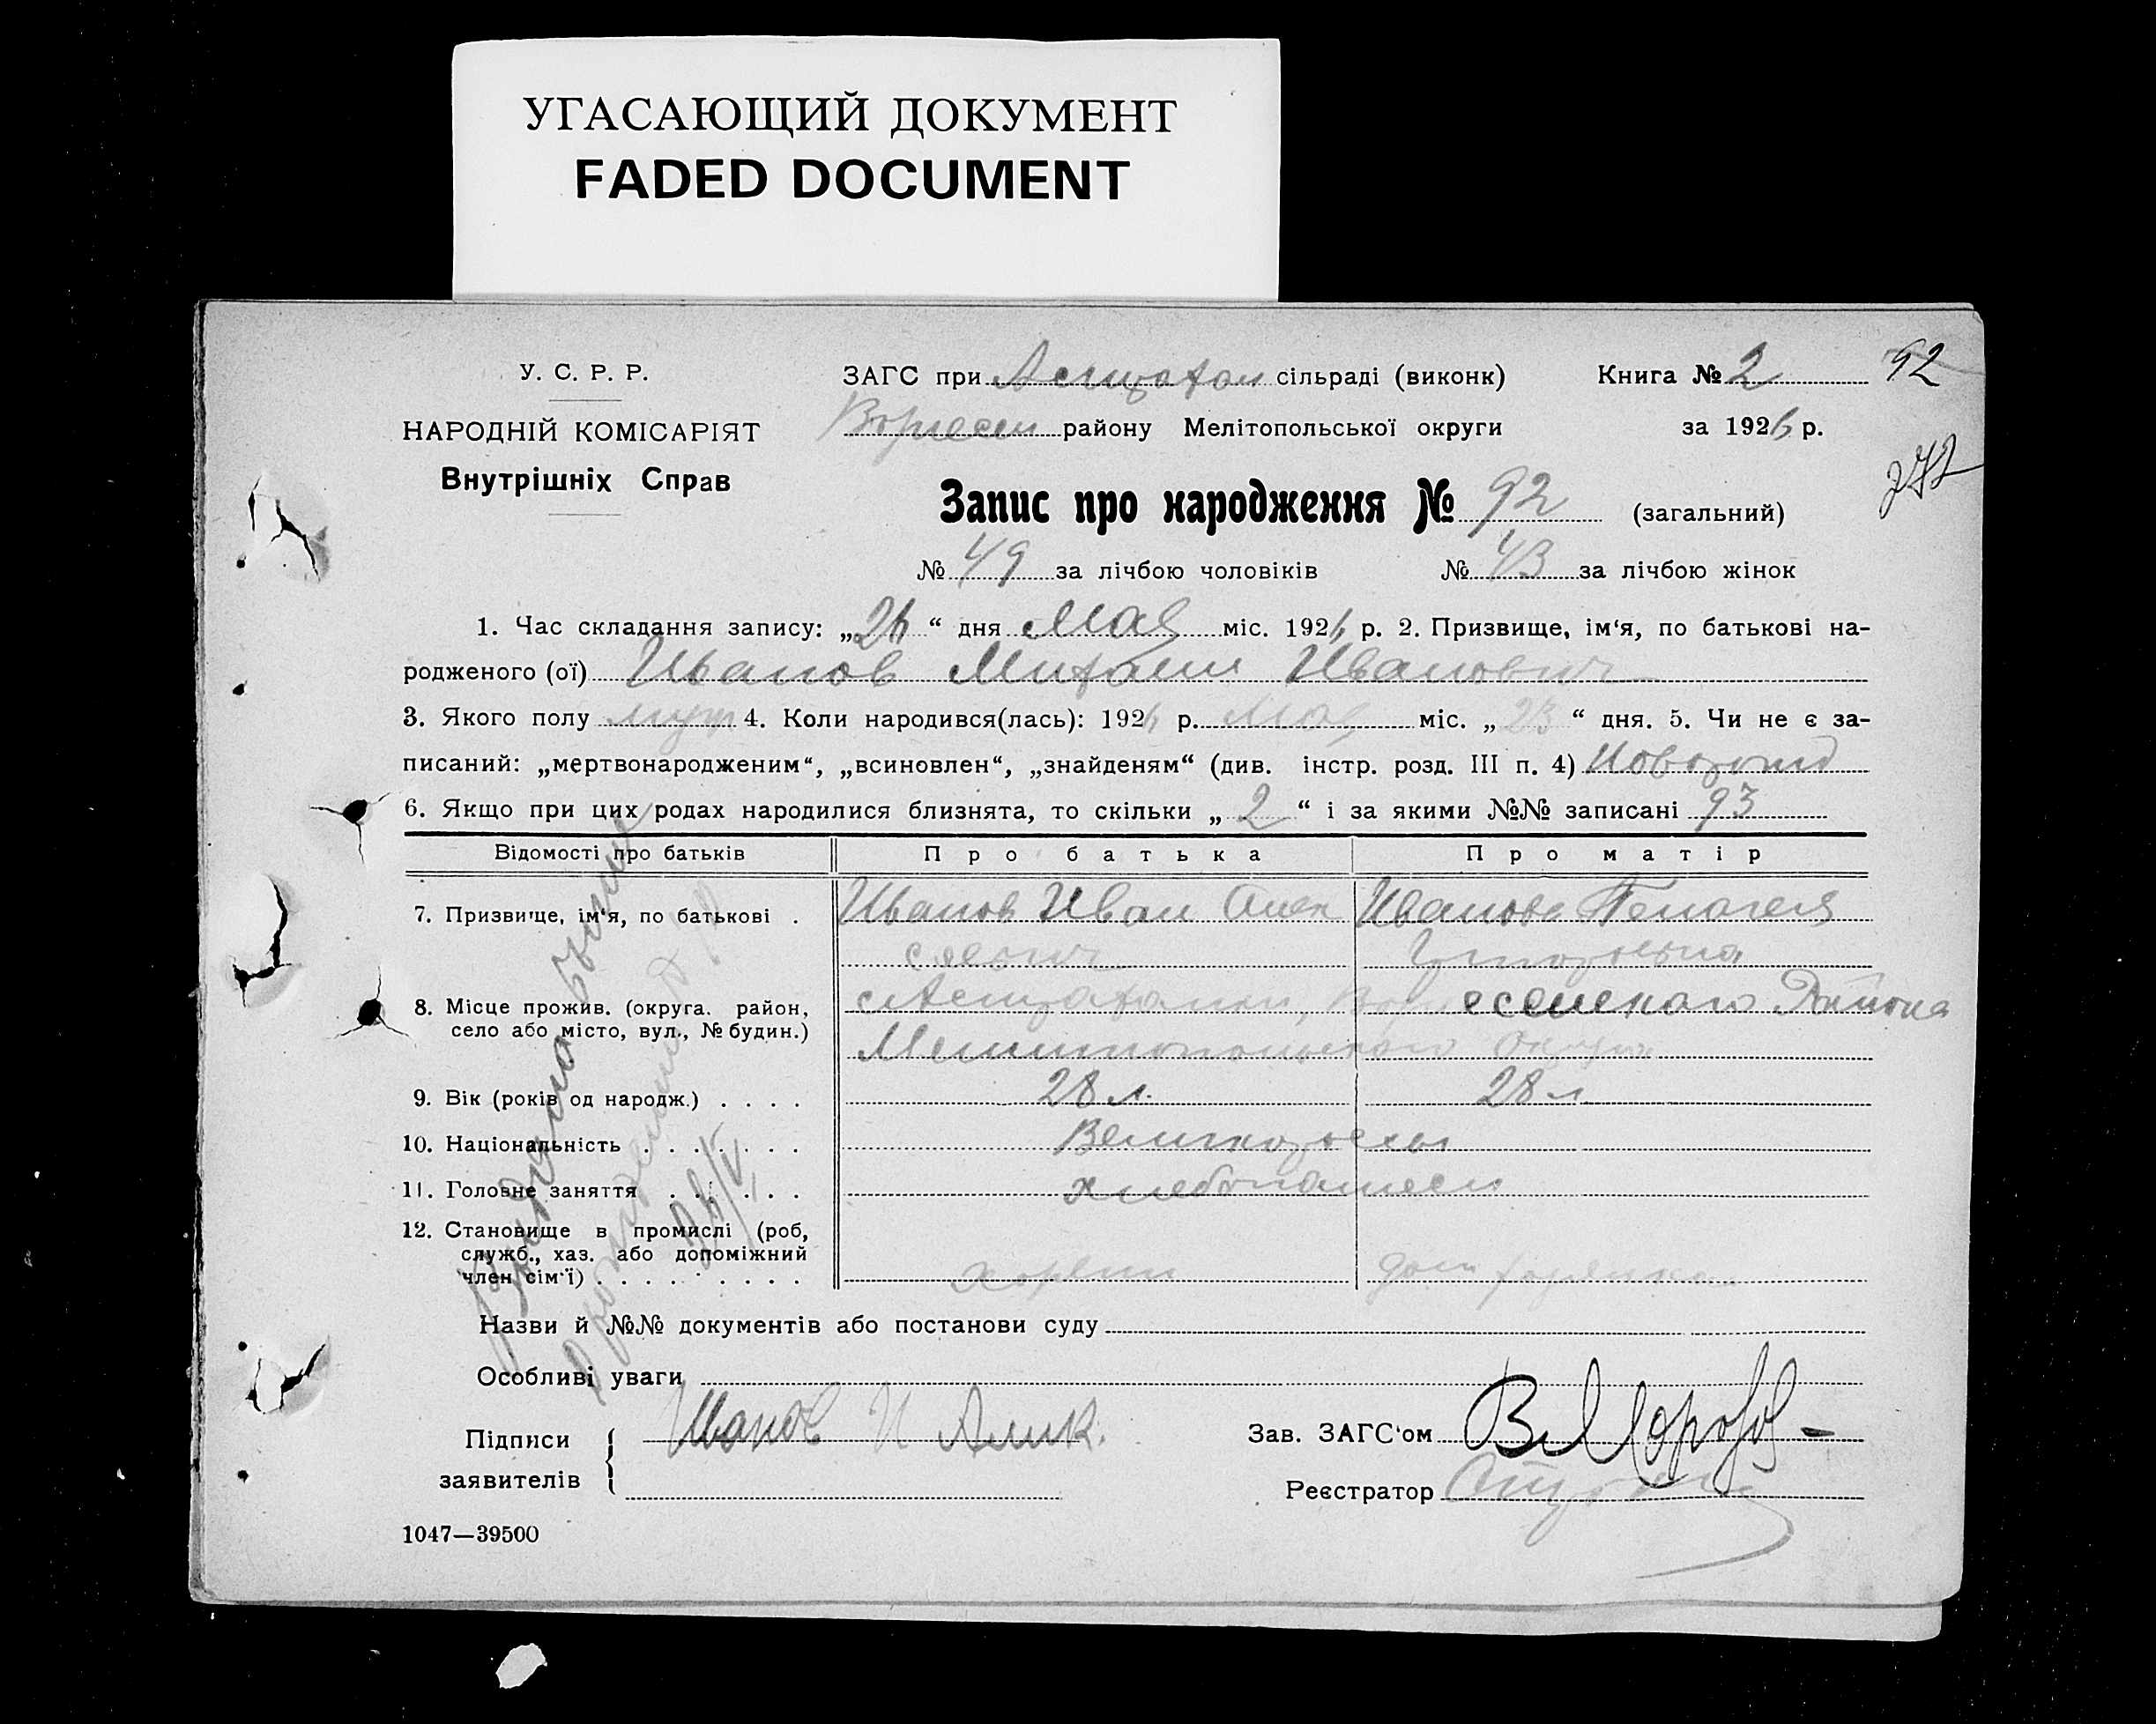 УГАСАЮЩИЙ ДОКУМЕНТ
FADED DOCUMENT
У. С. Р. Р.
НАРОДНІЙ КОМІСАРІЯТ
Внутрішніх Справ
ЗАГС при сільраді (виконк)
Книга № 2
92
району Мелітопольської округи
за 1926 р.
272
Запис про народження № 92 (загальний)
№ 49 за лічбою чоловіків № 43 за лічбою жінок
1. Час складання запису: „26“ дня Мая міс. 1926 р. 2. Призвище, ім‘я, по батькові на-
родженого (ої) Иванов Михаил Иванович
3. Якого полу муж 4. Коли народився(лась): 1926 р. Мая міс. „23“ дня. 5. Чи не є за-
писаний: „мертвонародженим“, „всиновлен“, „знайденям“ (див. інстр. розд. III п. 4)
6. Якщо при цих родах народилися близнята, то скільки „2“ і за якими №№ записані 93
Відомості про батьків
Про батька
Про матір
7. Призвище, ім‘я, по батькові .
Иванов Иван Алек
Иванова Пелагея
сеевич
Григорьевна
8. Місце прожив. (округа. район,
село або місто, вул., № будин.)
Района
Мелитопольского Округа
9. Вік (років од народж.) . . . .
28 л.
28 л
10. Національність . . . . . . .
Великороссы
11. Головне заняття . . . . . .
хлебопашест
12. Становище в промислі (роб,
служб., хаз. або допоміжний
член сім‘ї) . . . . . . . . . .
хозяин
дом хозяйка
Выдана
26/V
Назви й №№ документів або постанови суду
Особливі уваги
Підписи
заявителів
Иванов И
Зав. ЗАГС‘ом
Реєстратор
1047—39500